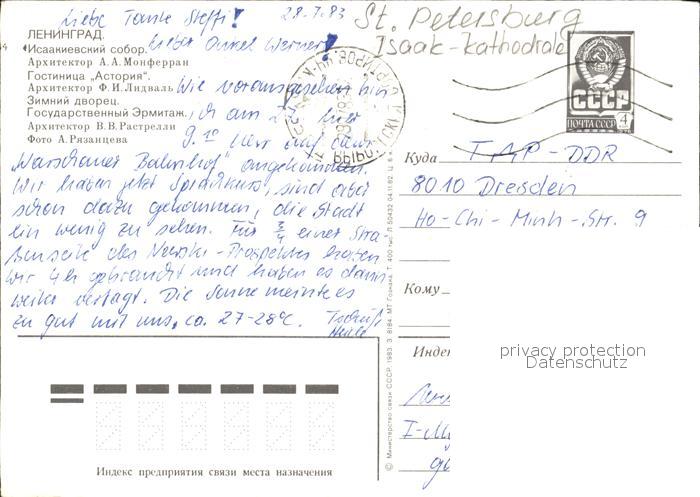 Liebe Tante Steffi! 28.7.83
St. Petersburg
Isaak-Kathedrale
ЛЕНИНГРАД.
Исаакиевский собор.
Lieber Onkel Werner!
Архитектор А.А.Монферран
Гостиница „Астория".
Архитектор Ф.И.Лидваль
Wie vorausgesehen bin
Зимний дворец.
Государственный Эрмитаж.
ich am 27. hier
Архитектор В.В.Растрелли
9.10 Uhr auf dem
Фото А.Рязанцева
„Warschauer Bahnhof" angekommen.
Wir haben jetzt Sprachkurs, sind aber
schon dazu gekommen, die Stadt
ein wenig zu sehen. Für 3/4 einer Stra-
ßenseite des Newski-Prospektes haben
wir 4h gebraucht und haben es dann
weiter vertagt. Die Sonne meinte es
zu gut mit uns, ca. 27-28°C. Tschüß,
СССР
ПОЧТА СССР 4
Куда
ГДР-DDR
8010 Dresden
Ho-Chi-Minh-Str. 9
Кому
Индек
privacy protection
Datenschutz
© Министерство связи СССР, 1983. З. 8184. МТ Гознака. Т. 400 тыс.
Индекс предприятия связи места назначения